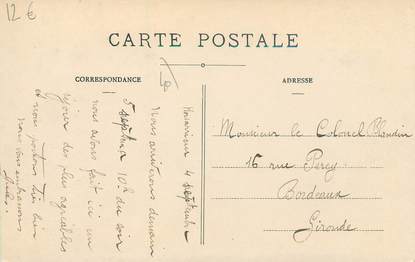 12 €
CARTE POSTALE
CORRESPONDANCE
ADRESSE
4 septembre
Nous arriverons demain
5 septembre 10h du soir
nous avons fait ici un
séjour des plus agréables
et nous portons très bien
nous vous embrassons
Monsieur le Colonel
16 rue Percy
Bordeaux
Gironde